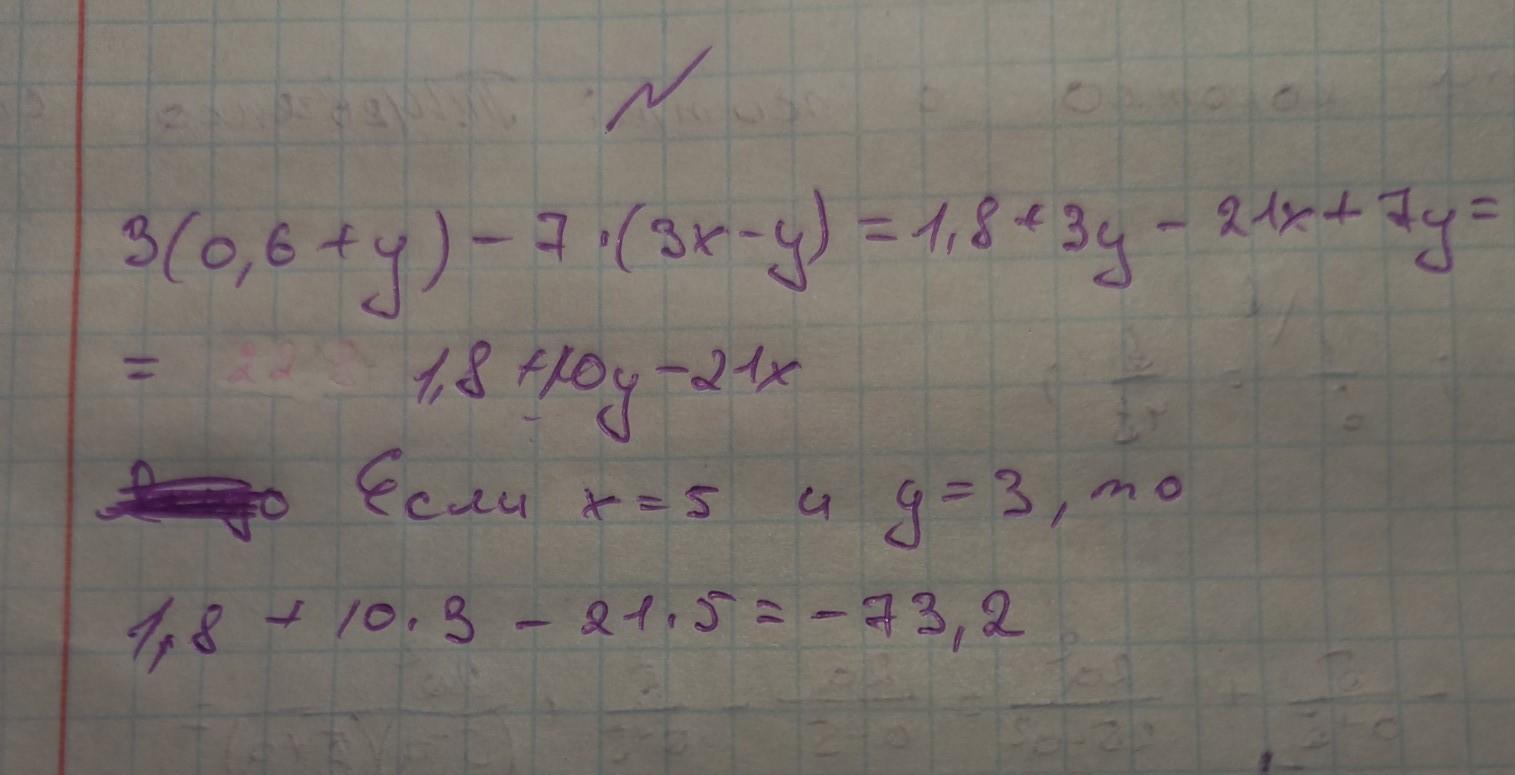 3(0,6+y)-7·(3x-y)=1,8+3y-21x+7y=
= 1,8+10y-21x
Если x=5 и y=3, то
1,8+10·3-21·5=-73,2